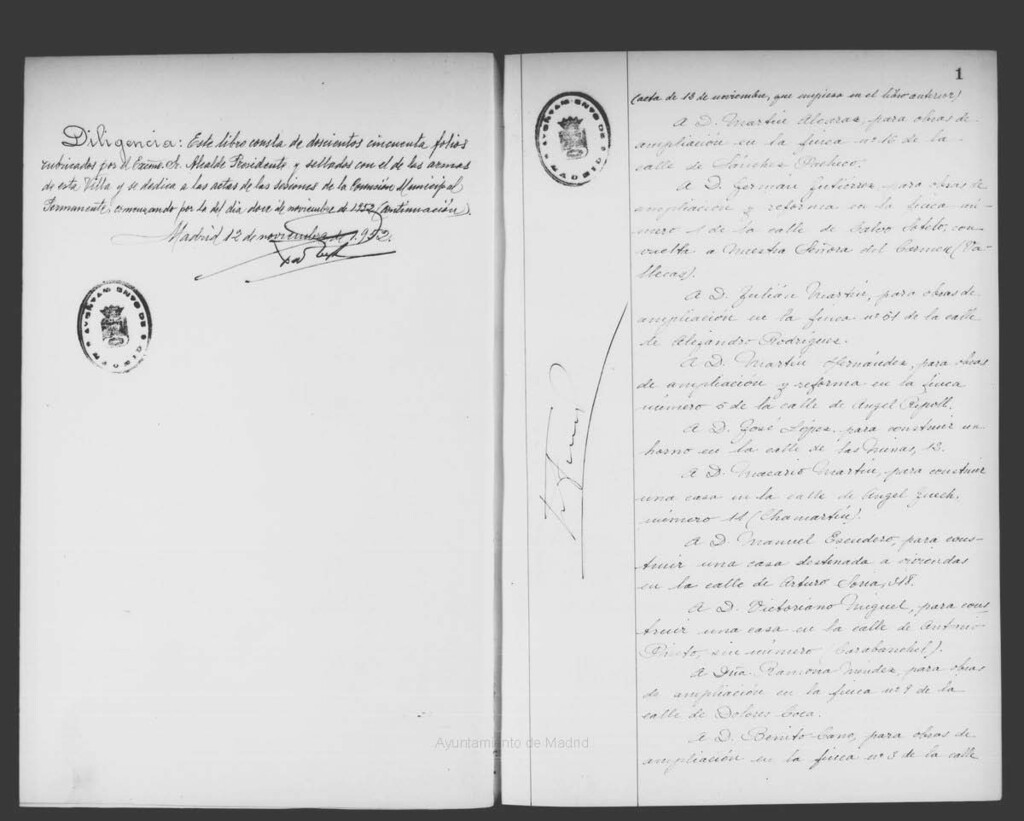 Diligencia: Este libro consta de doscientos cincuenta folios
rubricados por el Excmo. Sr. Alcalde Presidente, y sellados con el de las armas
de esta Villa y se dedica a las actas de las sesiones de la Comisión Municipal
Permanente, comenzando por la del día doce de noviembre de 1952 (continuación).
Madrid 12 de noviembre de 1952.
AYUNTAMIENTO DE MADRID
1
AYUNTAMIENTO DE MADRID
(acta de 13 de noviembre, que empieza en el libro anterior)
A D. Martín Alcaraz, para obras de
ampliación en la finca nº 16 de la
calle de Sánchez Pacheco.
A D. Germán Gutiérrez, para obras de
ampliación y reforma en la finca nú-
mero 1 de la calle de Calvo Sotelo, con
vuelta a Nuestra Señora del Carmen (Va-
llecas).
A D. Julián Martín, para obras de
ampliación en la finca nº 51 de la calle
de Alejandro Rodríguez.
A D. Martín Hernández, para obras
de ampliación y reforma en la finca
número 5 de la calle de Angel Ripoll.
A D. José López, para construir un
horno en la calle de las Minas, 13.
A D. Macario Martín, para construir
una casa en la calle de Angel
número 11 (Chamartín).
A D. Manuel Escudero, para cons-
truir una casa destinada a viviendas
en la calle de Arturo Soria, 318.
A D. Victoriano Miguel, para cons
truir una casa en la calle de Antonio
Pinto, sin número (Carabanchel).
A Dña. Ramona Méndez, para obras
de ampliación en la finca nº 8 de la
calle de Dolores Coca.
A D. Benito Cano, para obras de
ampliación en la finca nº 3 de la calle
Ayuntamiento de Madrid